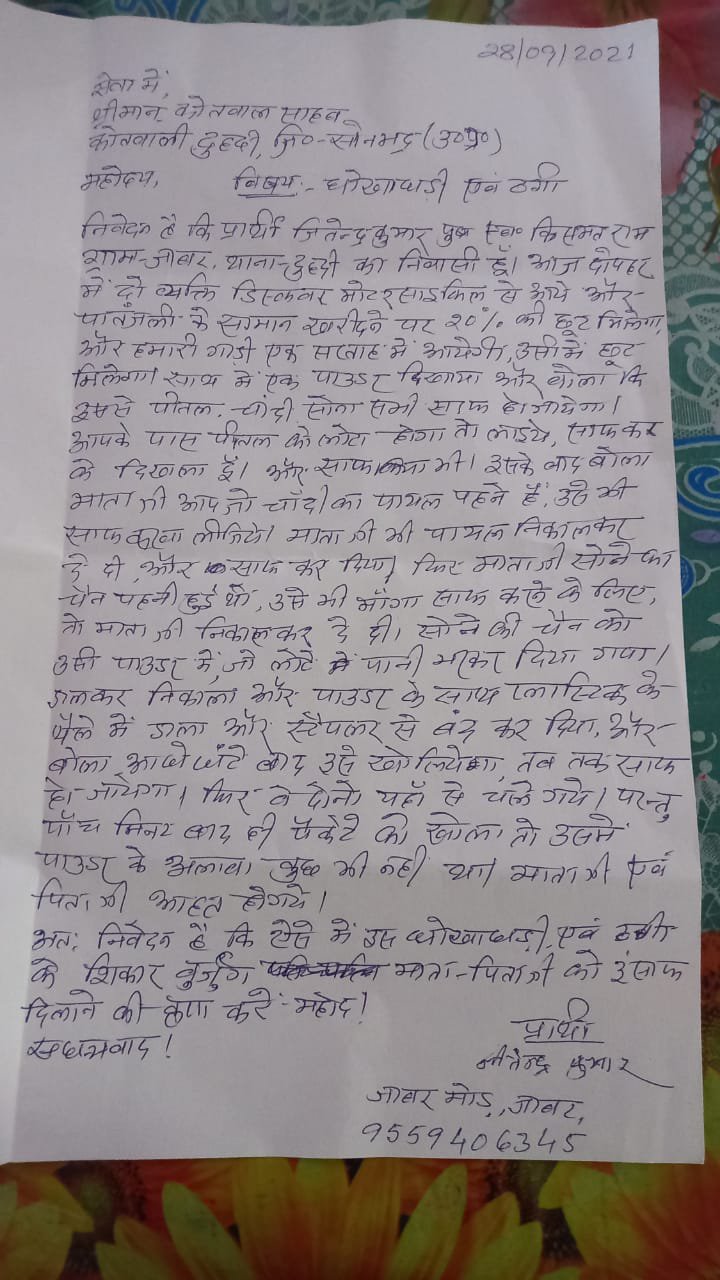 28/09/2021
सेवा में,
श्रीमान् कोतवाल साहब
कोतवाली दुद्धी, जि०-सोनभद्र (उ०प्र०)
महोदय, विषय:- धोखाधड़ी एवं ठगी
निवेदन है कि प्रार्थी जितेन्द्र कुमार पुत्र स्व० किसमत राम
ग्राम-जाबर, थाना-दुद्धी का निवासी हूँ। आज दोपहर
में दो व्यक्ति डिस्कवर मोटरसाइकिल से आये और
पातंजली के सामान खरीदने पर 20% की छूट मिलेगा,
और हमारी गाड़ी एक सप्ताह में आयेगी, उसी में छूट
मिलेगा। साथ में एक पाउडर दिखाया और बोला कि
इससे पीतल, चांदी सोना सभी साफ हो जायेगा।
आपके पास पीतल को लोटा होगा तो लाइये, साफ कर
के दिखाला हूँ। और साफ किया भी। इसके बाद बोला
माता जी आप जो चाँदी का पायल पहने हैं, उसे भी
साफ करवा लीजिये। माता जी भी पायल निकालकर
दे दी, और साफ कर दिया, फिर माता जी सोने का
चैन पहनी हुई थी, उसे भी माँगा साफ करने के लिए,
तो माता जी निकालकर दे दी। सोने की चैन को
उसी पाउडर में, जो लोटे में पानी भरकर दिया गया।
डालकर निकाला और पाउडर के साथ प्लास्टिक के
थैले में डाला और स्टैपलर से बंद कर दिया, और
बोला आधे घंटे बाद इसे खोलियेगा, तब तक साफ
हो जायेगा। फिर वे दोनो यहाँ से चले गये। परन्तु
पाँच मिनट बाद ही पैकेट को खोला तो उसमें
पाउडर के अलावा कुछ भी नही था। माता जी एवं
पिता जी आहत हो गये।
अत: निवेदन है कि ऐसे में इस धोखाधड़ी एवं ठगी
के शिकार बुर्जुग माता-पिता जी को इंसाफ
दिलाने की कृपा करें महोद!
सधन्यवाद!
प्रार्थी
जीतेन्द्र कुमार
जाबर मोड़, जाबर,
9559406345